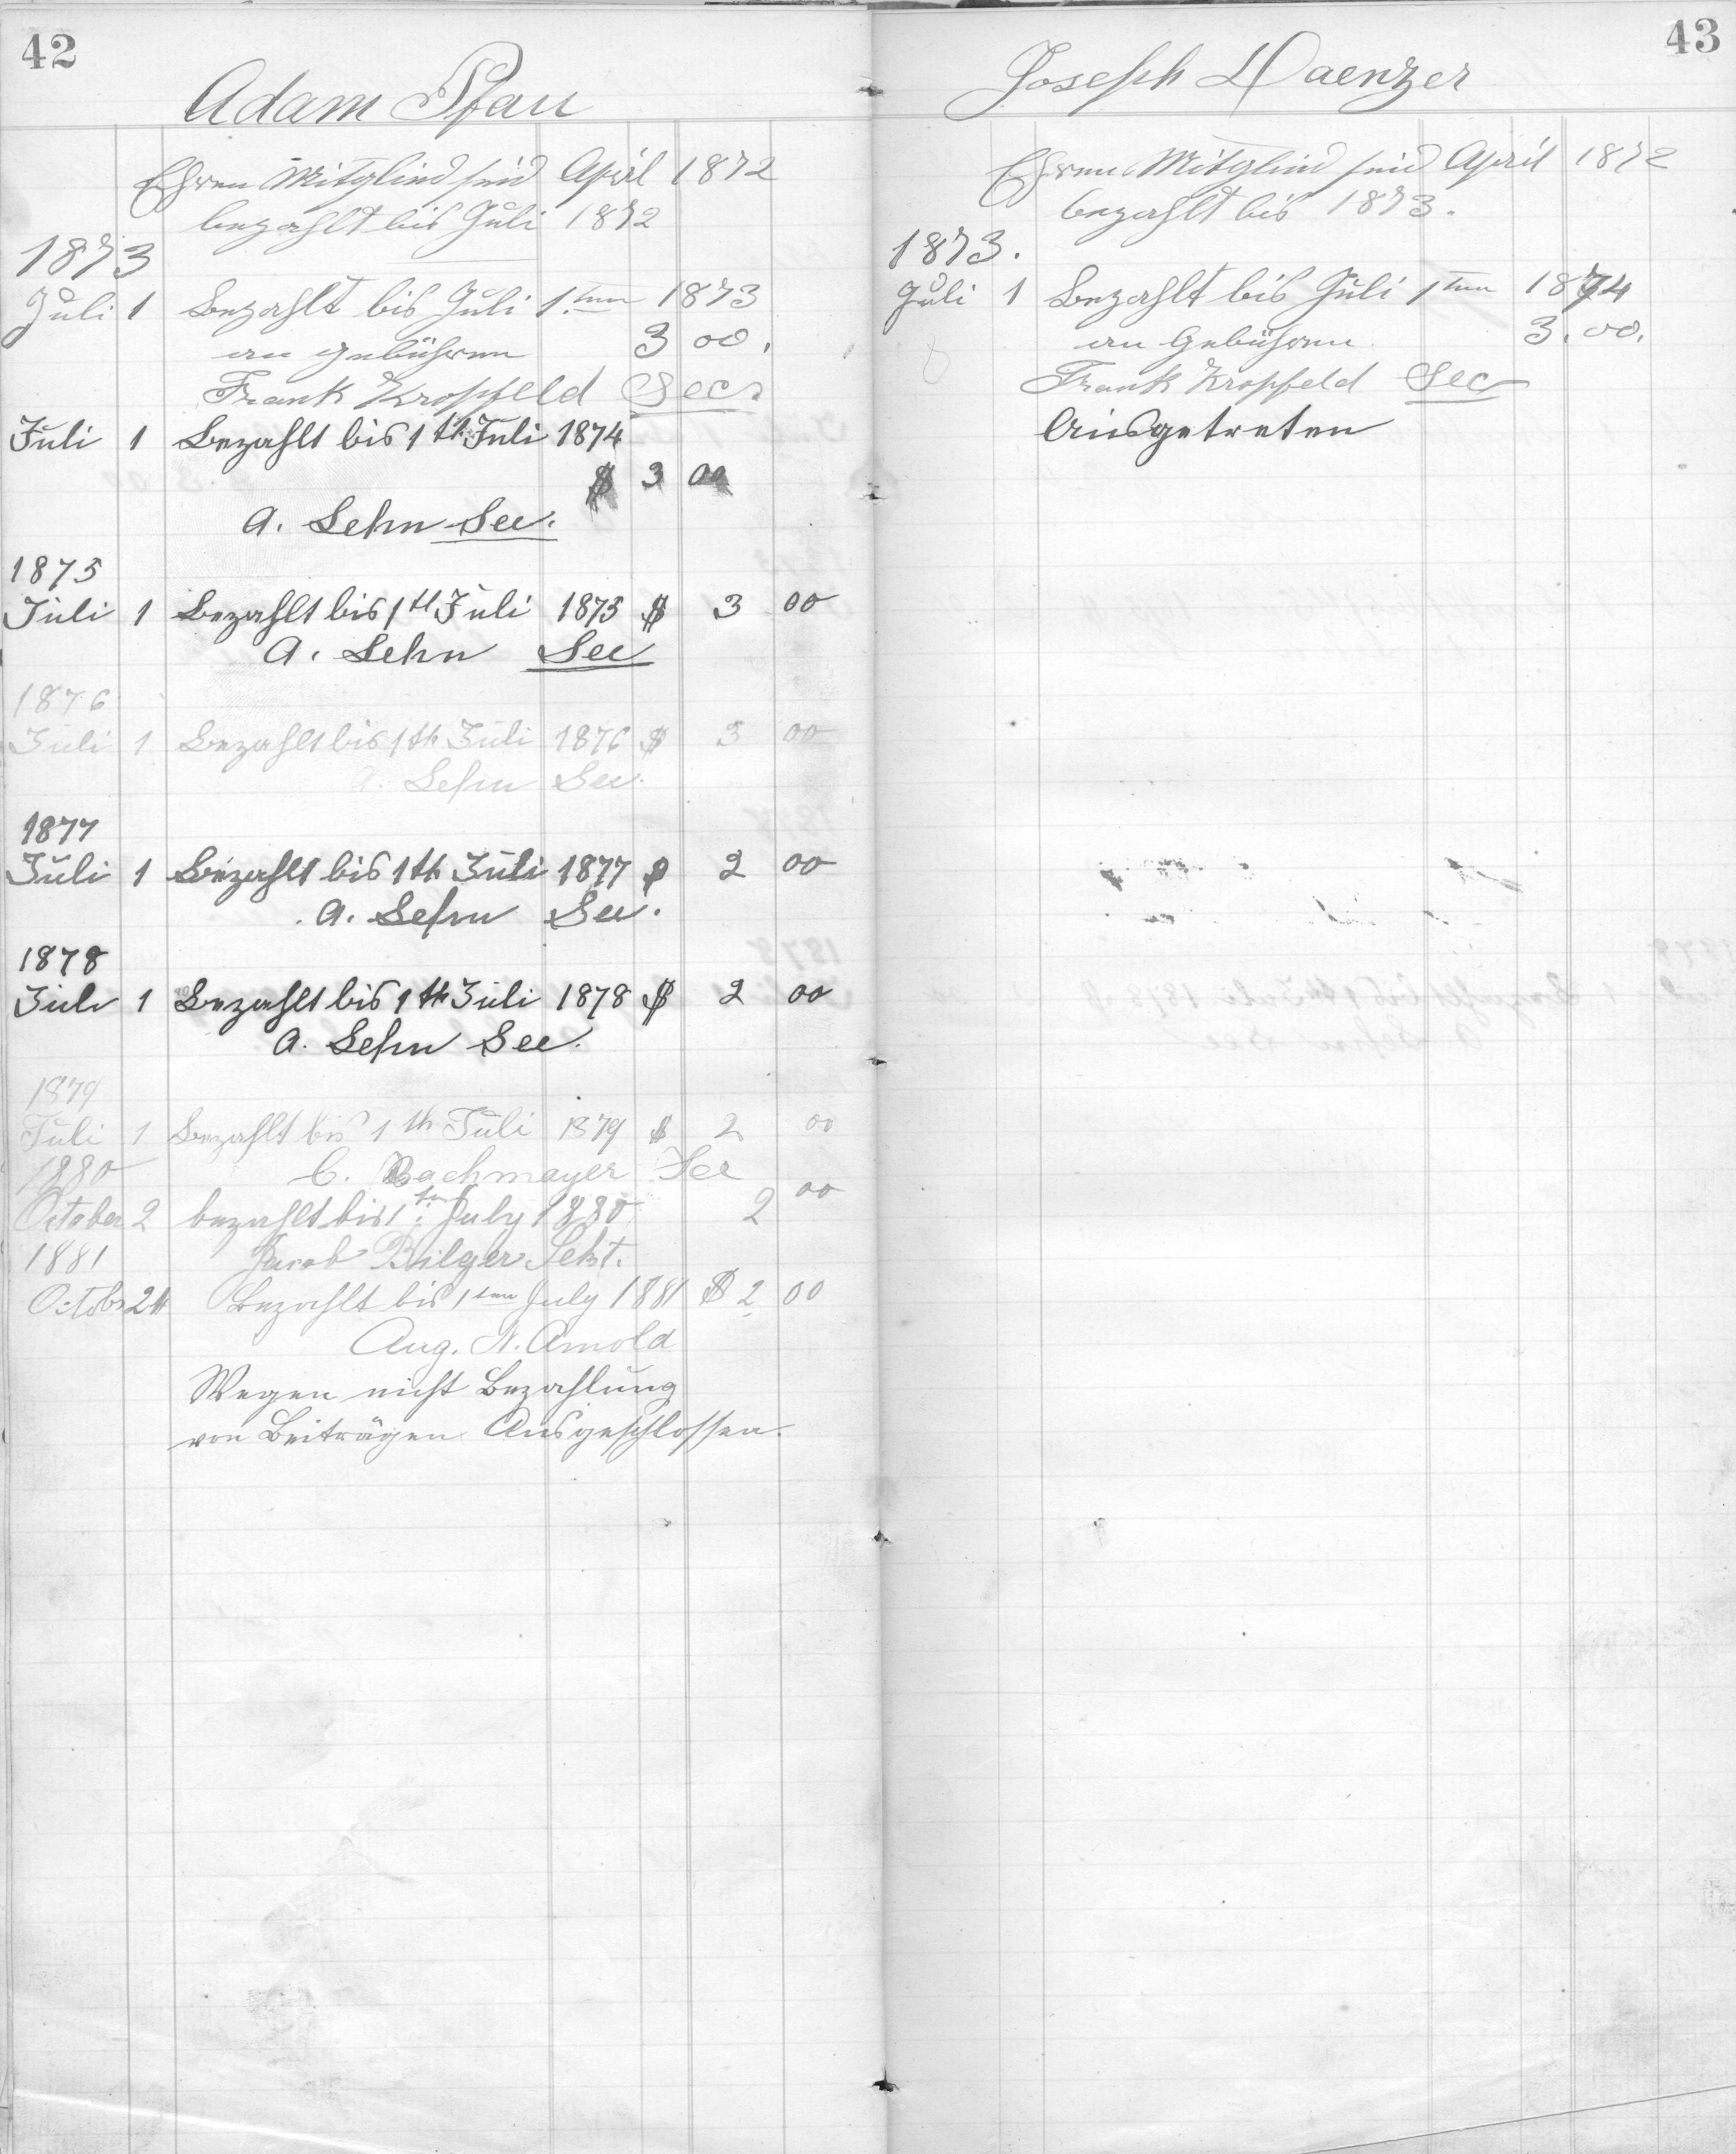 42
Adam Pfau
Ehren Mitglied seid April 1872
bezahlt bis Juli 1872
1873
Juli 1 Bezahlt bis Juli 1.ten 1873
an gebühren 3 00.
Frank Kropfeld Sec.
Juli 1 Bezahlt bis 1 th Juli 1874
$ 3 00
A. Sehn Sec.
1875
Juli 1 Bezahlt bis 1th Juli 1875 $ 3 00
A. Sehn Sec
1876
Juli 1 Bezahlt bis 1th Juli 1876 $ 3 00
A. Sehn Sec.
1877
Juli 1 Bezahlt bis 1th Juli 1877 $ 2 00
A. Sehn Sec.
1878
Juli 1 Bezahlt bis 1th Juli 1878 $ 2 00
A. Sehn Sec.
1879
Juli 1 Bezahlt bis 1th Juli 1879 $ 2 00
C. Bachmayer Sec
1880
October 2 bezahlt bis 1ten July 1880 2 00
Jacob Bilger Sekt.
1881
Octob 24 Bezahlt bis 1ten July 1881 $ 2 00
Aug. N. Arnold
Wegen nicht Bezahlung
von Beiträgen Ausgeschlossen.
43
Joseph Daenzer
Ehren Mitglied seid April 1872
bezahlt bis 1873.
1873.
Juli 1 Bezahlt bis Juli 1ten 1874
an Gebühren 3.00.
Frank Kropfeld Sec
Ausgetreten